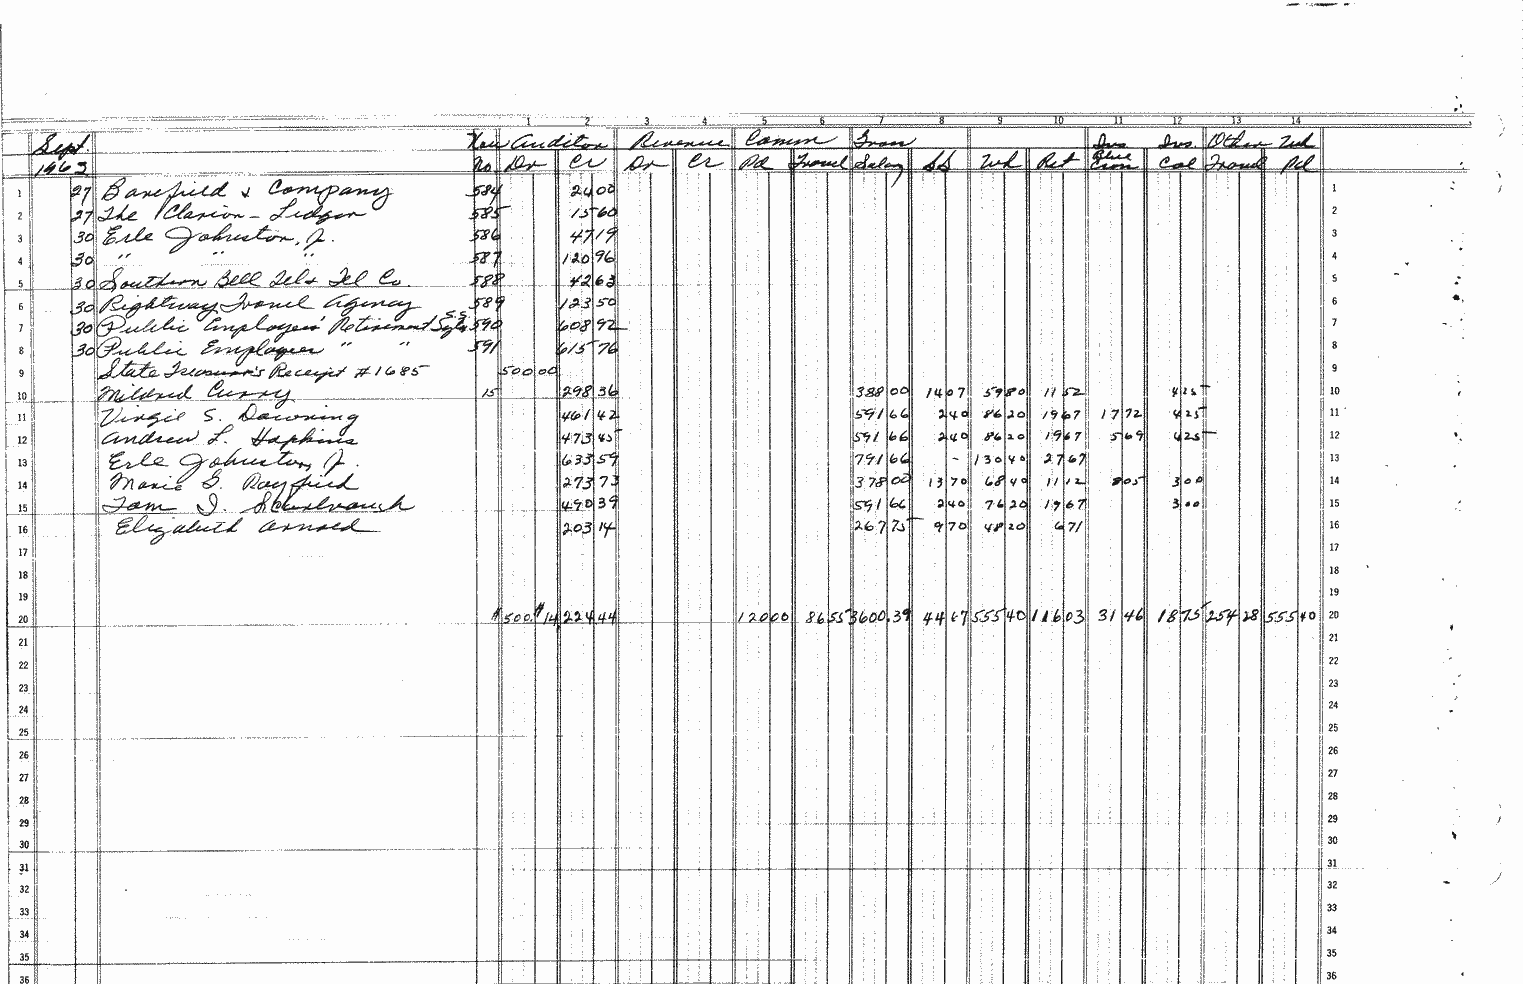 1 2 3 4 5 6 7 8 9 10 11 12 13 14
Sept. Auditor Revenue Comm Ins Ins. Other Wh
1963 No. Dr Cr Dr Cr Pd Travel Salary SS Wh Ret Blue Cross Col Travel Pd
1 27 Barefield & Company 584 24 00 1
2 27 The Clarion-Ledger 585 15 60 2
3 30 Erle Johnston, Jr. 586 47 19 3
4 30 " " " 587 120 96 4
5 30 Southern Bell Tel & Tel Co. 588 42 63 5
6 30 Rightway Travel Agency 589 123 50 6
7 30 Public Employees' Retirement Sys S.S. 590 608 92 7
8 30 Public Employees " " 591 615 76 8
9 State Treasurer's Receipt #1685 500 00 9
10 Mildred Curry 15 298 36 388 00 14 07 59 80 11 52 4 25 10
11 Virgie S. Downing 461 42 591 66 2 40 86 20 19 67 17 72 4 25 11
12 Andrew L. Hopkins 473 45 591 66 2 40 86 20 19 67 5 69 4 25 12
13 Erle Johnston, Jr. 633 59 791 66 - 130 40 27 67 13
14 Marie G. Rayfield 273 73 378 00 13 70 68 40 11 12 8 05 3 00 14
15 Tom I. Scarbrough 490 39 591 66 2 40 76 20 19 67 3 00 15
16 Elizabeth Arnold 203 14 267 75 9 70 48 20 6 71 16
17 17
18 18
19 19
20 $500. $14,224 44 120 00 86 55 3600.39 44 67 555 40 116 03 31 46 18 75 254 28 555 40 20
21 21
22 22
23 23
24 24
25 25
26 26
27 27
28 28
29 29
30 30
31 31
32 32
33 33
34 34
35 35
36 36